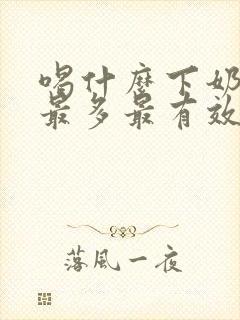 喝什麽下奶
最多最有效
落風一夜